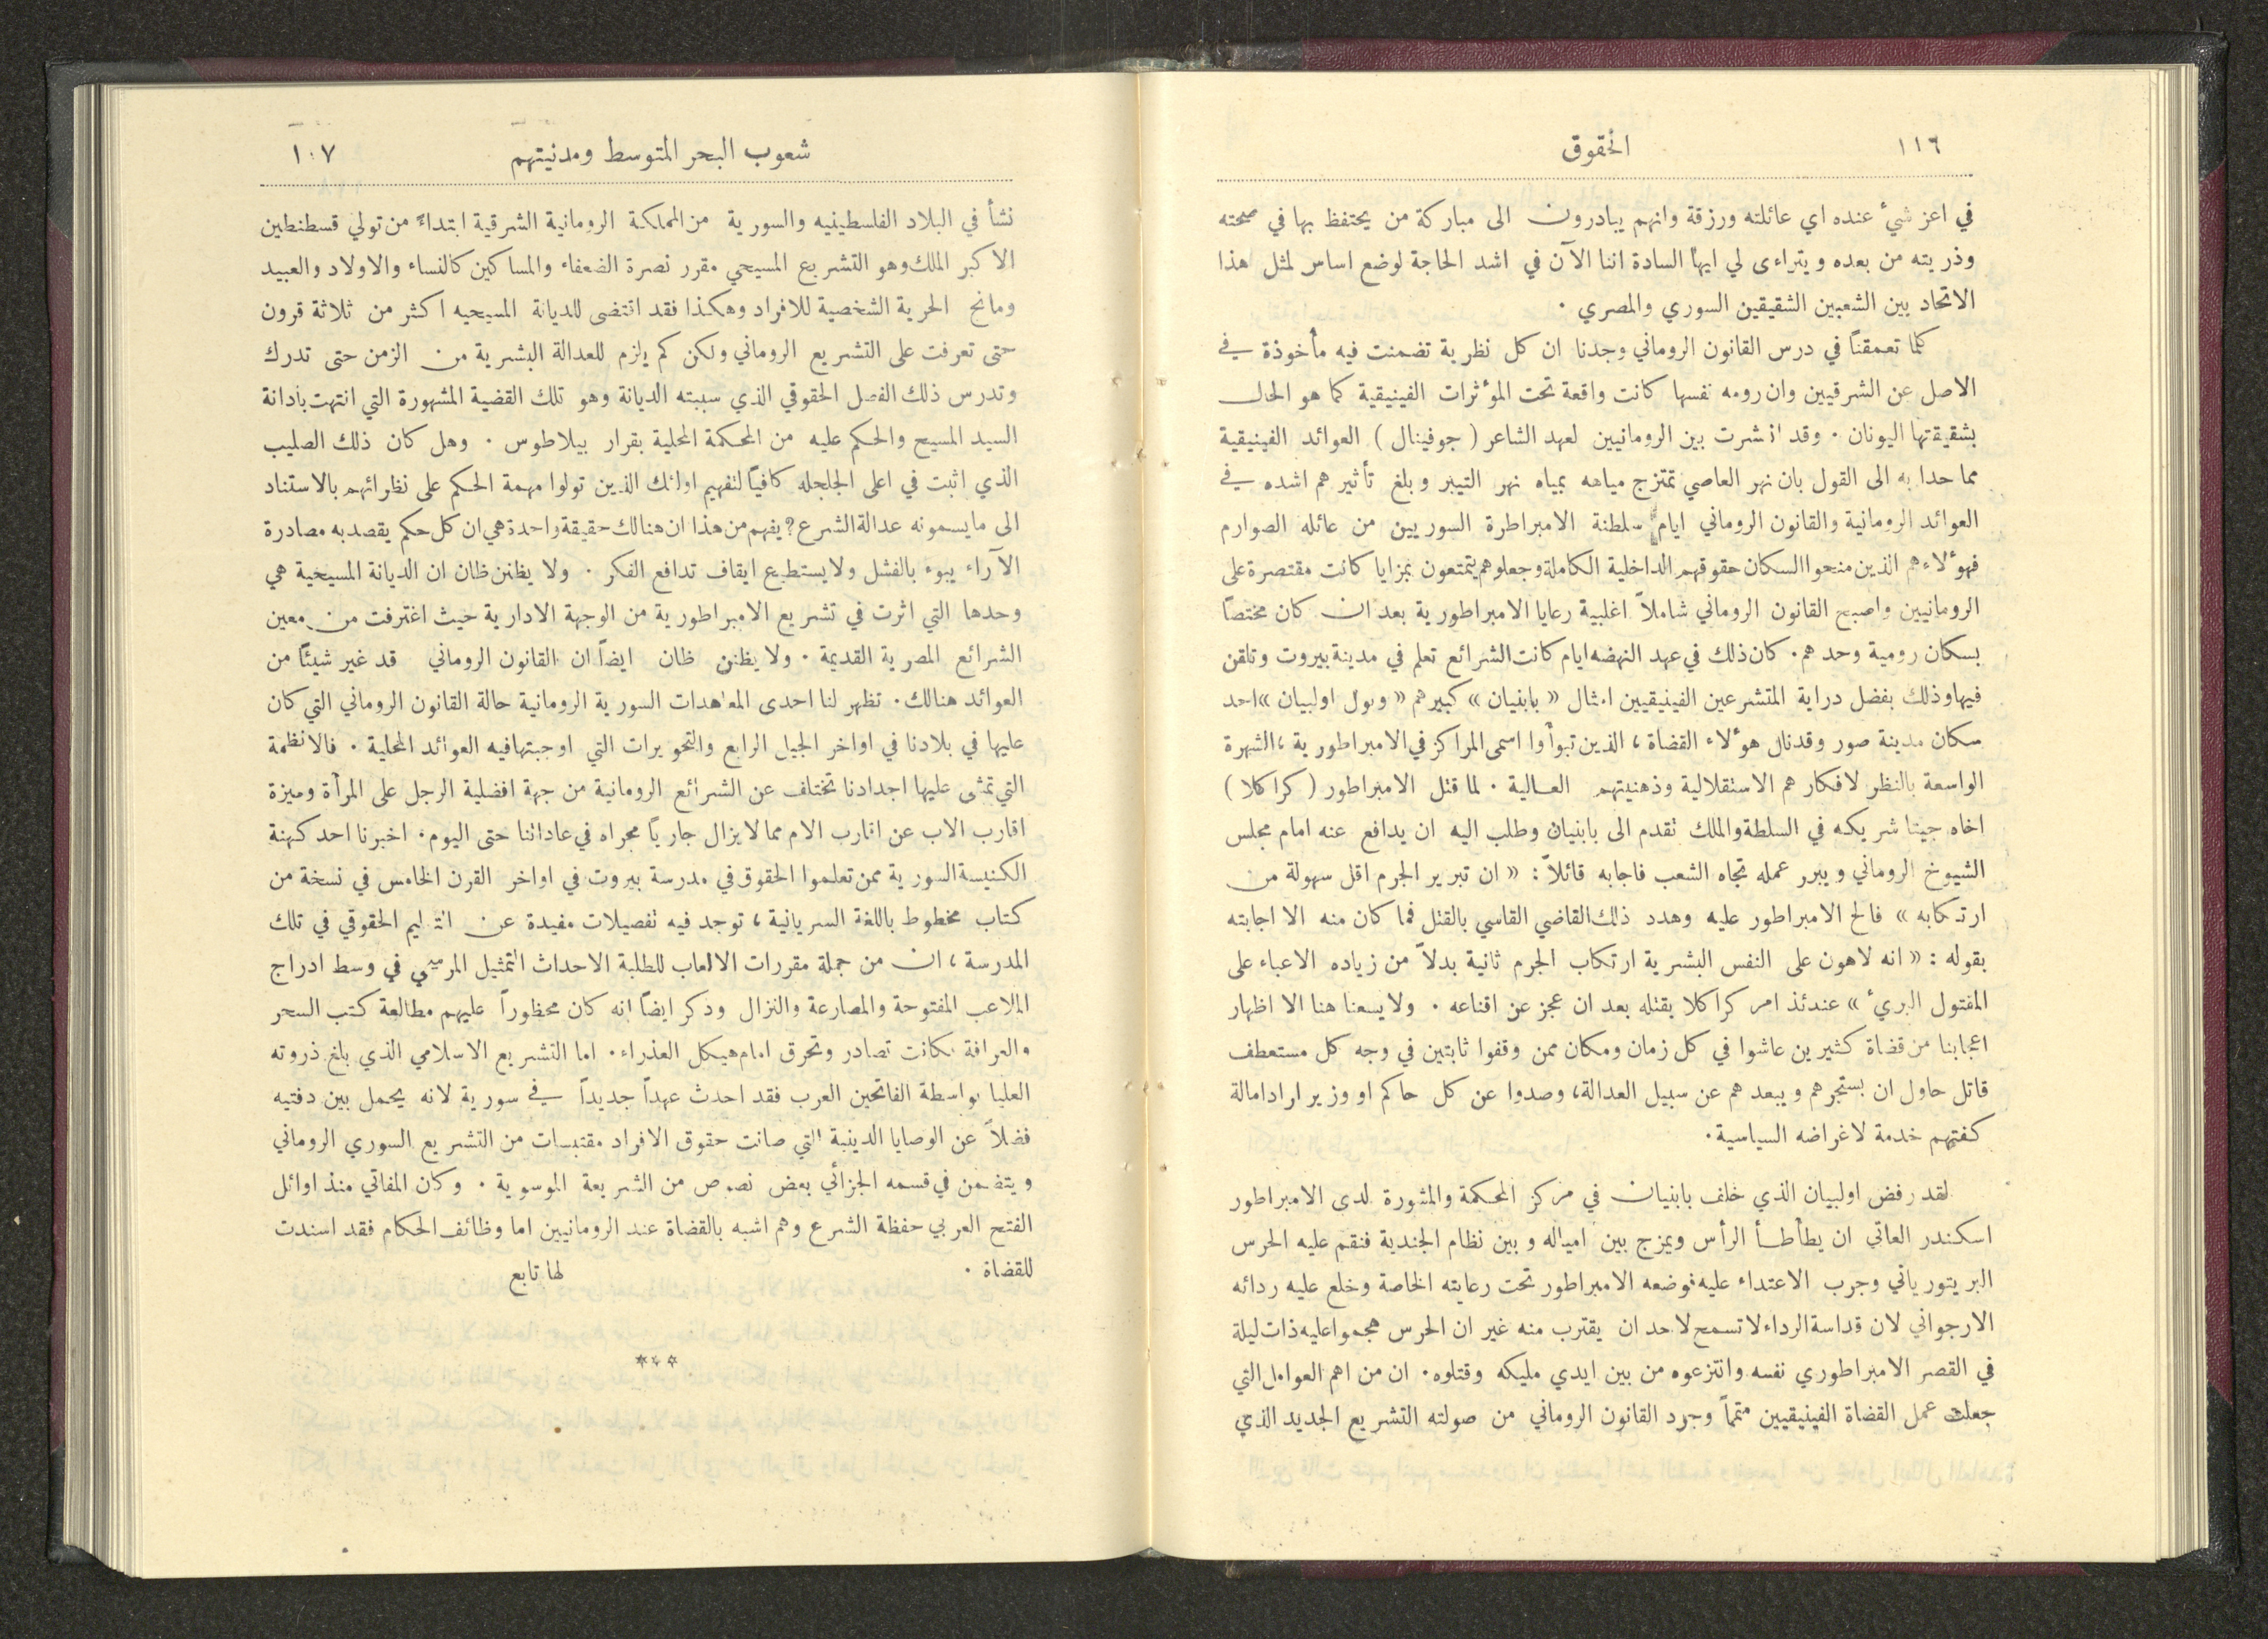 ١١٦
الحقوق
في اعز شيءٔ عنده اي عائلته ورزقة وانهم يبادرون الى مباركة من يحتفظ بها في صحته
وذريته من بعده ويتراءى لي ايها السادة اننا الآن في اشد الحاجة لوضع اساس لمثل هذا
الاتحاد بين الشعبين الشقيقين السوري والمصري ·
كلما تعمقنا في درس القانون الروماني وجدنا ان كل نظرية تضمنت فيه مأخوذة في
الاصل عن الشرقيين وان رومه نفسها كانت واقعة تحت المؤثرات الفينيقية كما هو الحال
بشقيقتها اليونان · وقد انتشرت بين الرومانيين لعهد الشاعر ( جوفينال ) العوائد الفينيقية
مما حدا به الى القول بان نهر العاصي تمتزج مياهه بمياه نهر التيبر وبلغ تأثيرهم اشده في
العوائد الرومانية والقانون الروماني ايام سلطنة الامبراطرة السوريين من عائله الصوارم
فهؤلاء هم الذين منحوا السكان حقوقهم الداخلية الكاملة وجعلوهم يتمتعون بمزايا كانت مقتصرة على
الرومانيين واصبح القانون الروماني شاملاً اغلبية رعايا الامبراطورية بعد ان كان مختصاً
بسكان رومية وحدهم · كان ذلك في عهد النهضه ايام كانت الشرائع تعلم في مدينة بيروت وتلقن
فيها وذلك بفضل دراية المتشرعين الفينيقيين امثال « بابنيان » كبيرهم « وبول اولبيان » احد
سكان مدينة صور وقد نال هؤلاء القضاة ، الذين تبوأوا اسمى المراكز في الامبراطورية ، الشهرة
الواسعة بالنظر لافكارهم الاستقلالية وذهنيتهم العالية · لما قتل الامبراطور ( كراكلا )
اخاه جيتا شريكه في السلطة والملك تقدم الى بابنيان وطلب اليه ان يدافع عنه امام مجلس
الشيوخ الروماني ويبرر عمله تجاه الشعب فاجابه قائلاً : « ان تبرير الجرم اقل سهولة من
ارتكابه » فالح الامبراطور عليه وهدد ذلك القاضي القاسي بالقتل فما كان منه الا اجابته
بقوله : « انه لاهون على النفس البشرية ارتكاب الجرم ثانية بدلاً من زياده الاعباء على
المقتول البريءٔ » عندئذ امر كراكلا بقتله بعد ان عجز عن اقناعه · ولا يسعنا هنا الا اظهار
اعجابنا من قضاة كثيرين عاشوا في كل زمان ومكان ممن وقفوا ثابتين في وجه كل مستعطف
قاتل حاول ان يستجرهم ويبعدهم عن سبيل العدالة، وصدوا عن كل حاكم او وزير اراد امالة
كفتهم خدمة لاغراضه السياسية ·
لقد رفض اولبيان الذي خلف بابنيان في مركز المحكمة والمشورة لدى الامبراطور
اسكندر العاتي ان يطأطــأ الرأس ويمزج بين امياله وبين نظام الجندية فنقم عليه الحرس
البريتورياني وجرب الاعتداء عليه فوضعه الامبراطور تحت رعايته الخاصة وخلع عليه ردائه
الارجواني لان قداسة الرداء لا تسمح لاحد ان يقترب منه غير ان الحرس هجموا عليه ذات ليلة
في القصر الامبراطوري نفسه وانتزعوه من بين ايدي مليكه وقتلوه · ان من اهم العوامل التي
جعلت عمل القضاة الفينيقيين متمماً وجرد القانون الروماني من صولته التشريع الجديد الذي
شعوب البحر المتوسط ومدنيتهم
١٠٧
نشأ في البلاد الفلسطينيه والسورية من المملكة الرومانية الشرقية ابتداءً من تولي قسطنطين
الاكبر الملك وهو التشريع المسيحي مقرر نصرة الضعفاء والمساكين كالنساء والاولاد والعبيد
ومانح الحرية الشخصية للافراد وهكذا فقد اقتضى للديانة المسيحيه اكثر من ثلاثة قرون
حتى تعرفت على التشريع الروماني ولكن كم يلزم للعدالة البشرية من الزمن حتى تدرك
وتدرس ذلك الفصل الحقوقي الذي سببته الديانة وهو تلك القضية المشهورة التي انتهت بادانة
السيد المسيح والحكم عليه من المحكمة المحلية بقرار بيلاطوس · وهل كان ذلك الصليب
الذي اثبت في اعلى الجلجله كافياً لتفهيم اولئك الذين تولوا مهمة الحكم على نظرائهم بالاستناد
الى ما يسمونه عدالة الشرع ? يفهم من هذا ان هنالك حقيقة واحدة هي ان كل حكم يقصد به مصادرة
الآراء يبوء بالفشل ولا يستطيع ايقاف تدافع الفكر · ولا يظنن ظان ان الديانة المسيحية هي
وحدها التي اثرت في تشريع الامبراطورية من الوجهة الادارية حيث اغترفت من معين
الشرائع المصرية القديمة · ولا يظنن ظان ايضاً ان القانون الروماني قد غير شيئاً من
العوائد هنالك · تظهر لنا احدى المعاهدات السورية الرومانية حالة القانون الروماني التي كان
عليها في بلادنا في اواخر الجيل الرابع والتحويرات التي اوجبتها فيه العوائد المحلية · فالانظمة
التي تمشى عليها اجدادنا تختلف عن الشرائع الرومانية من جهة افضلية الرجل على المرأة وميزة
اقارب الاب عن اقارب الام مما لا يزال جارياً مجراه في عاداتنا حتى اليوم · اخبرنا احد كهنة
الكنيسة السورية ممن تعلموا الحقوق في مدرسة بيروت في اواخر القرن الخامس في نسخة من
كتاب مخطوط باللغة السريانية ، توجد فيه تفصيلات مفيدة عن التعليم الحقوقي في تلك
المدرسة ، ان من جملة مقررات الالعاب للطلبة الاحداث التمثيل المرسحي في وسط ادراج
الملاعب المفتوحة والمصارعة والنزال وذكر ايضاً انه كان محظوراً عليهم مطالعة كتب السحر
والعرافة فكانت تصادر وتحرق امام هيكل العذراء · اما التشريع الاسلامي الذي بلغ ذروته
العليا بواسطة الفاتحين العرب فقد احدث عهداً جديداً في سورية لانه يحمل بين دفتيه
فضلاً عن الوصايا الدينية التي صانت حقوق الافراد مقتبسات من التشريع السوري الروماني
ويتضمن في قسمه الجزائي بعض نصوص من الشريعة الموسوية · وكان المفاتي منذ اوائل
الفتح العربي حفظة الشرع وهم اشبه بالقضاة عند الرومانيين اما وظائف الحكام فقد اسندت
للقضاة · لها تابع
***